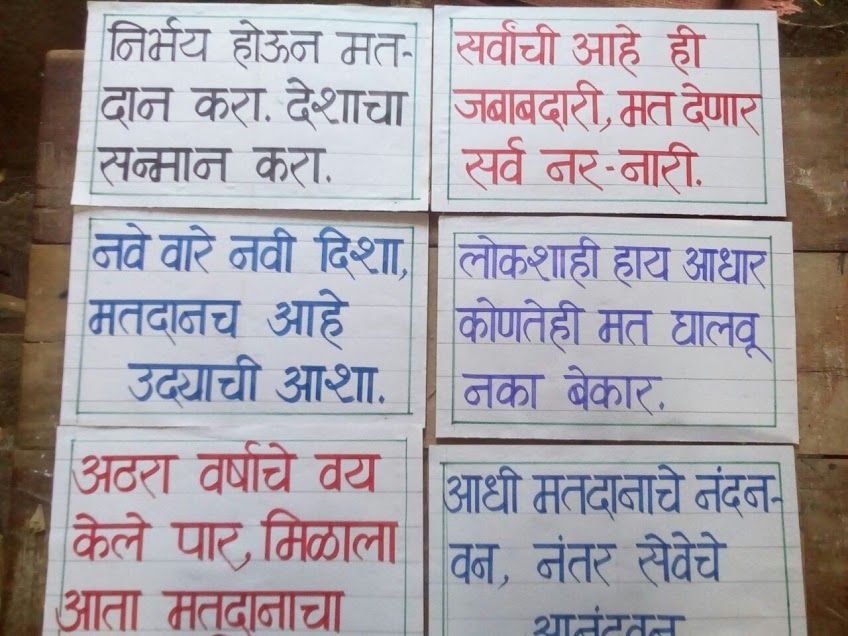 निर्भय होऊन मत-
दान करा. देशाचा
सन्मान करा.
सर्वांची आहे ही
जबाबदारी, मत देणार
सर्व नर-नारी.
नवे वारे नवी दिशा,
मतदानच आहे
उद्याची आशा.
लोकशाही हाय आधार
कोणतेही मत घालवू
नका बेकार.
अठरा वर्षाचे वय
केले पार, मिळाला
आता मतदानाचा
आधी मतदानाचे नंदन-
वन, नंतर सेवेचे
आनंदवन